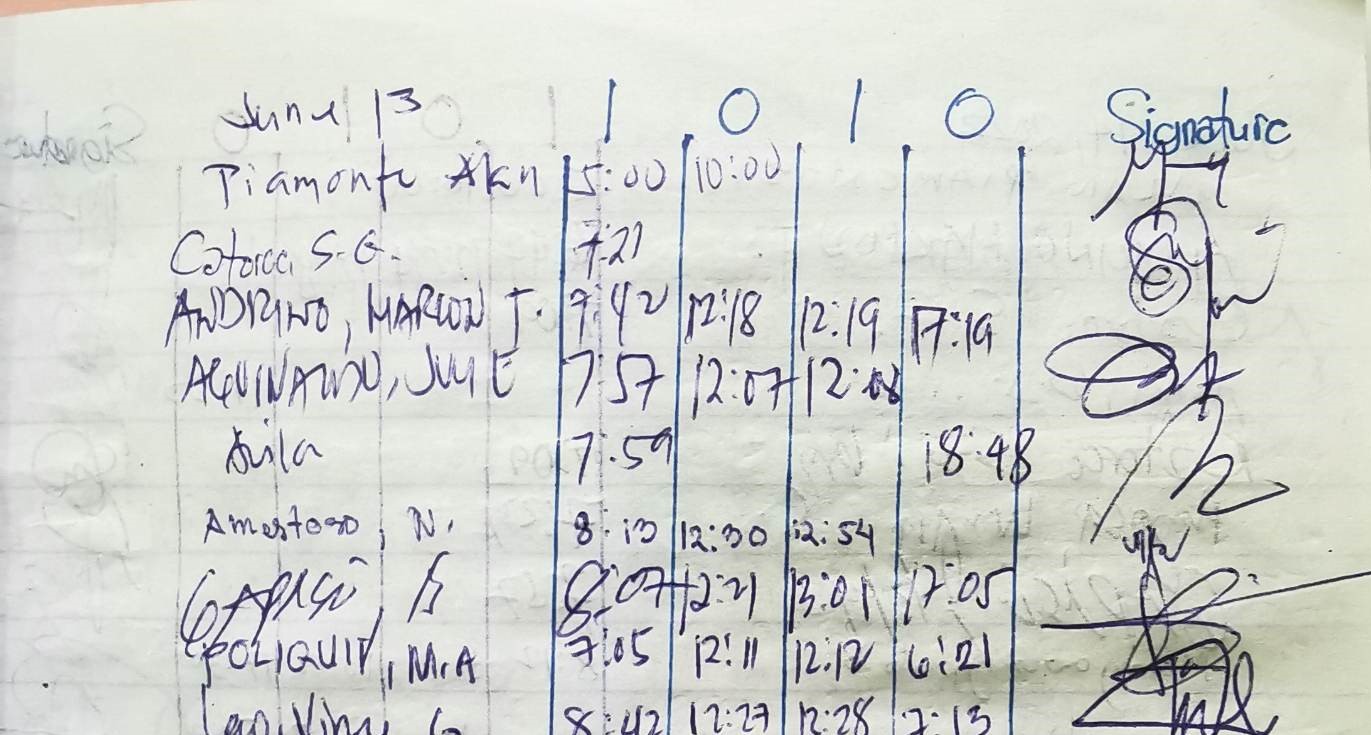 June 13 I O I O Signature
Piamonte Akn 5:00 10:00
S.G. 7:21
ANDRINO, MARLON J. 7:42 12:18 12:19 17:19
AGUINALDO, JULY E 7:57 12:07 12:08
Avila 7:59 18:48
Amestoso, N. 8:13 12:30 12:54
8:07 12:21 13:01 17:05
POLIQUIT, M.A 7:05 12:11 12:12 6:21
8:42 12:27 12:28 7:13